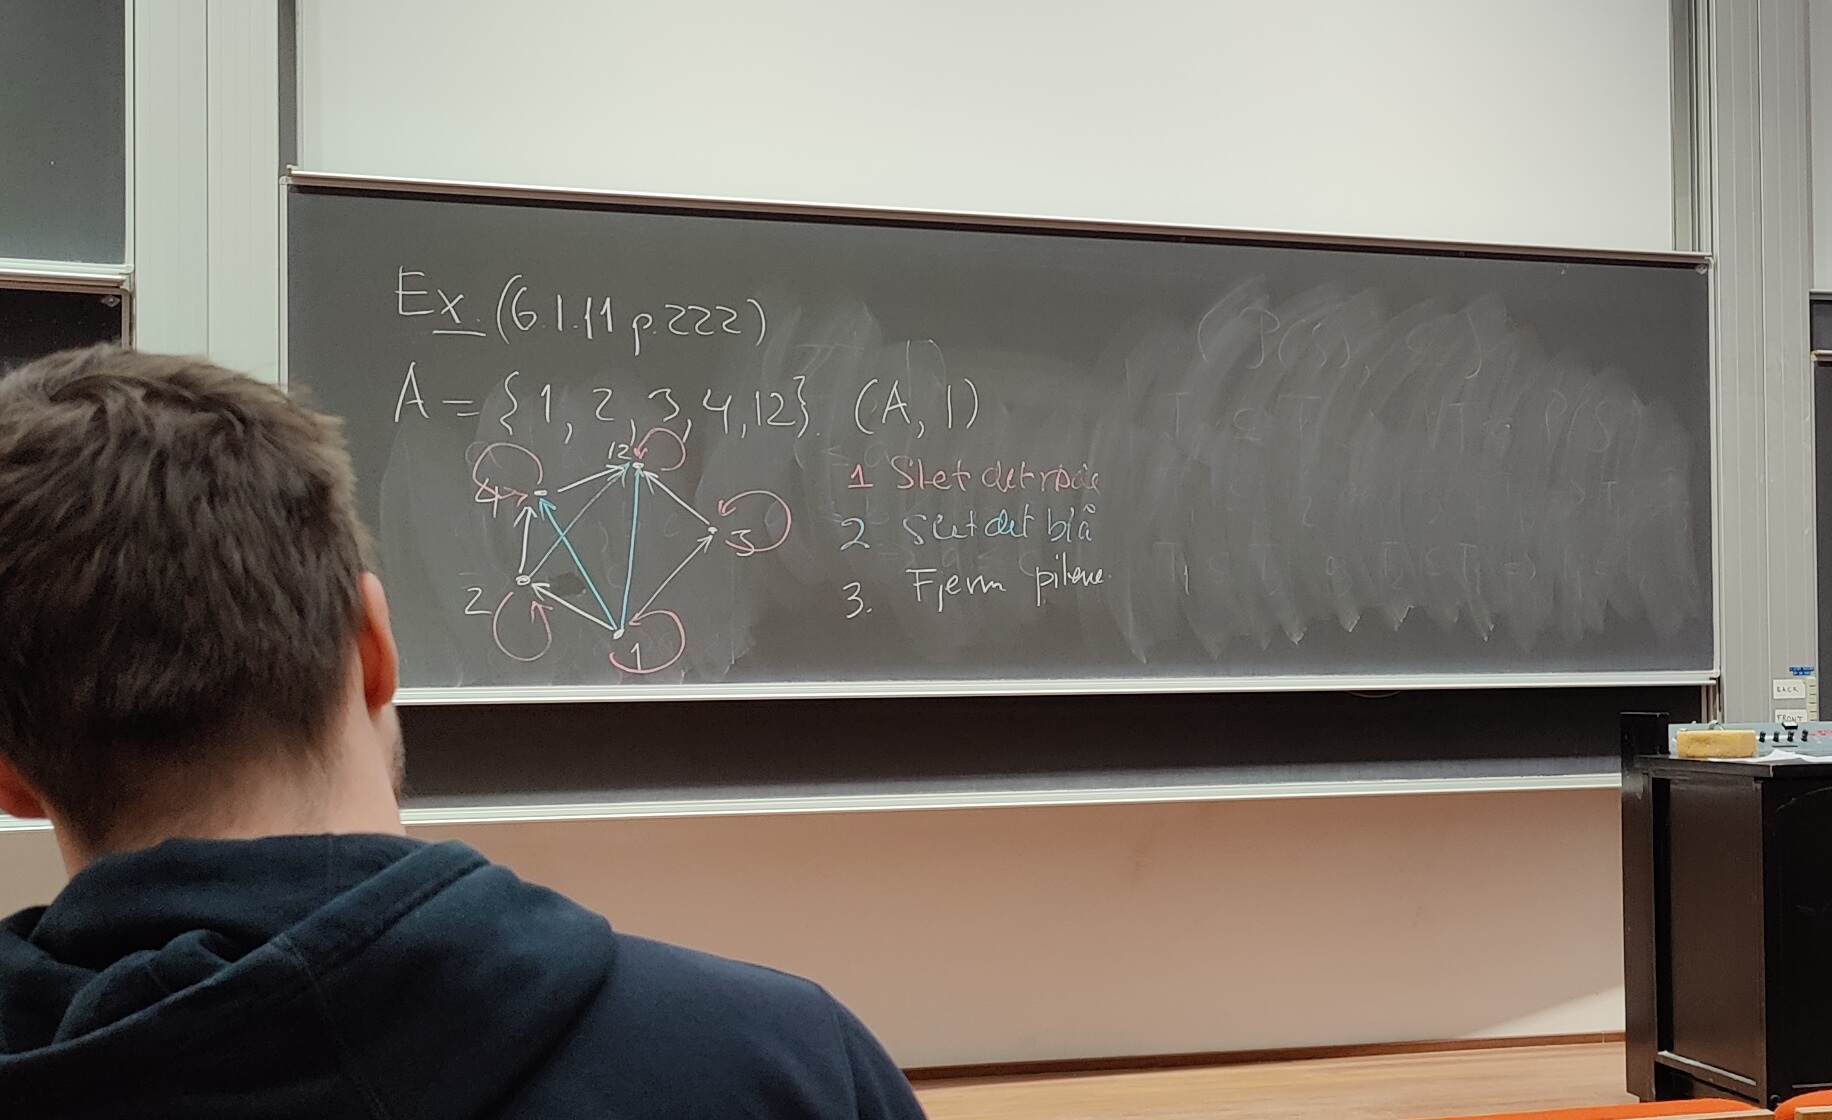 Ex. (6.1.11 p.222)
A = {1, 2, 3, 4, 12}. (A, |)
12
4
3
2
1
1 Slet det røde
2. Slet det blå
3. Fjern pilene.
BACK
FRONT